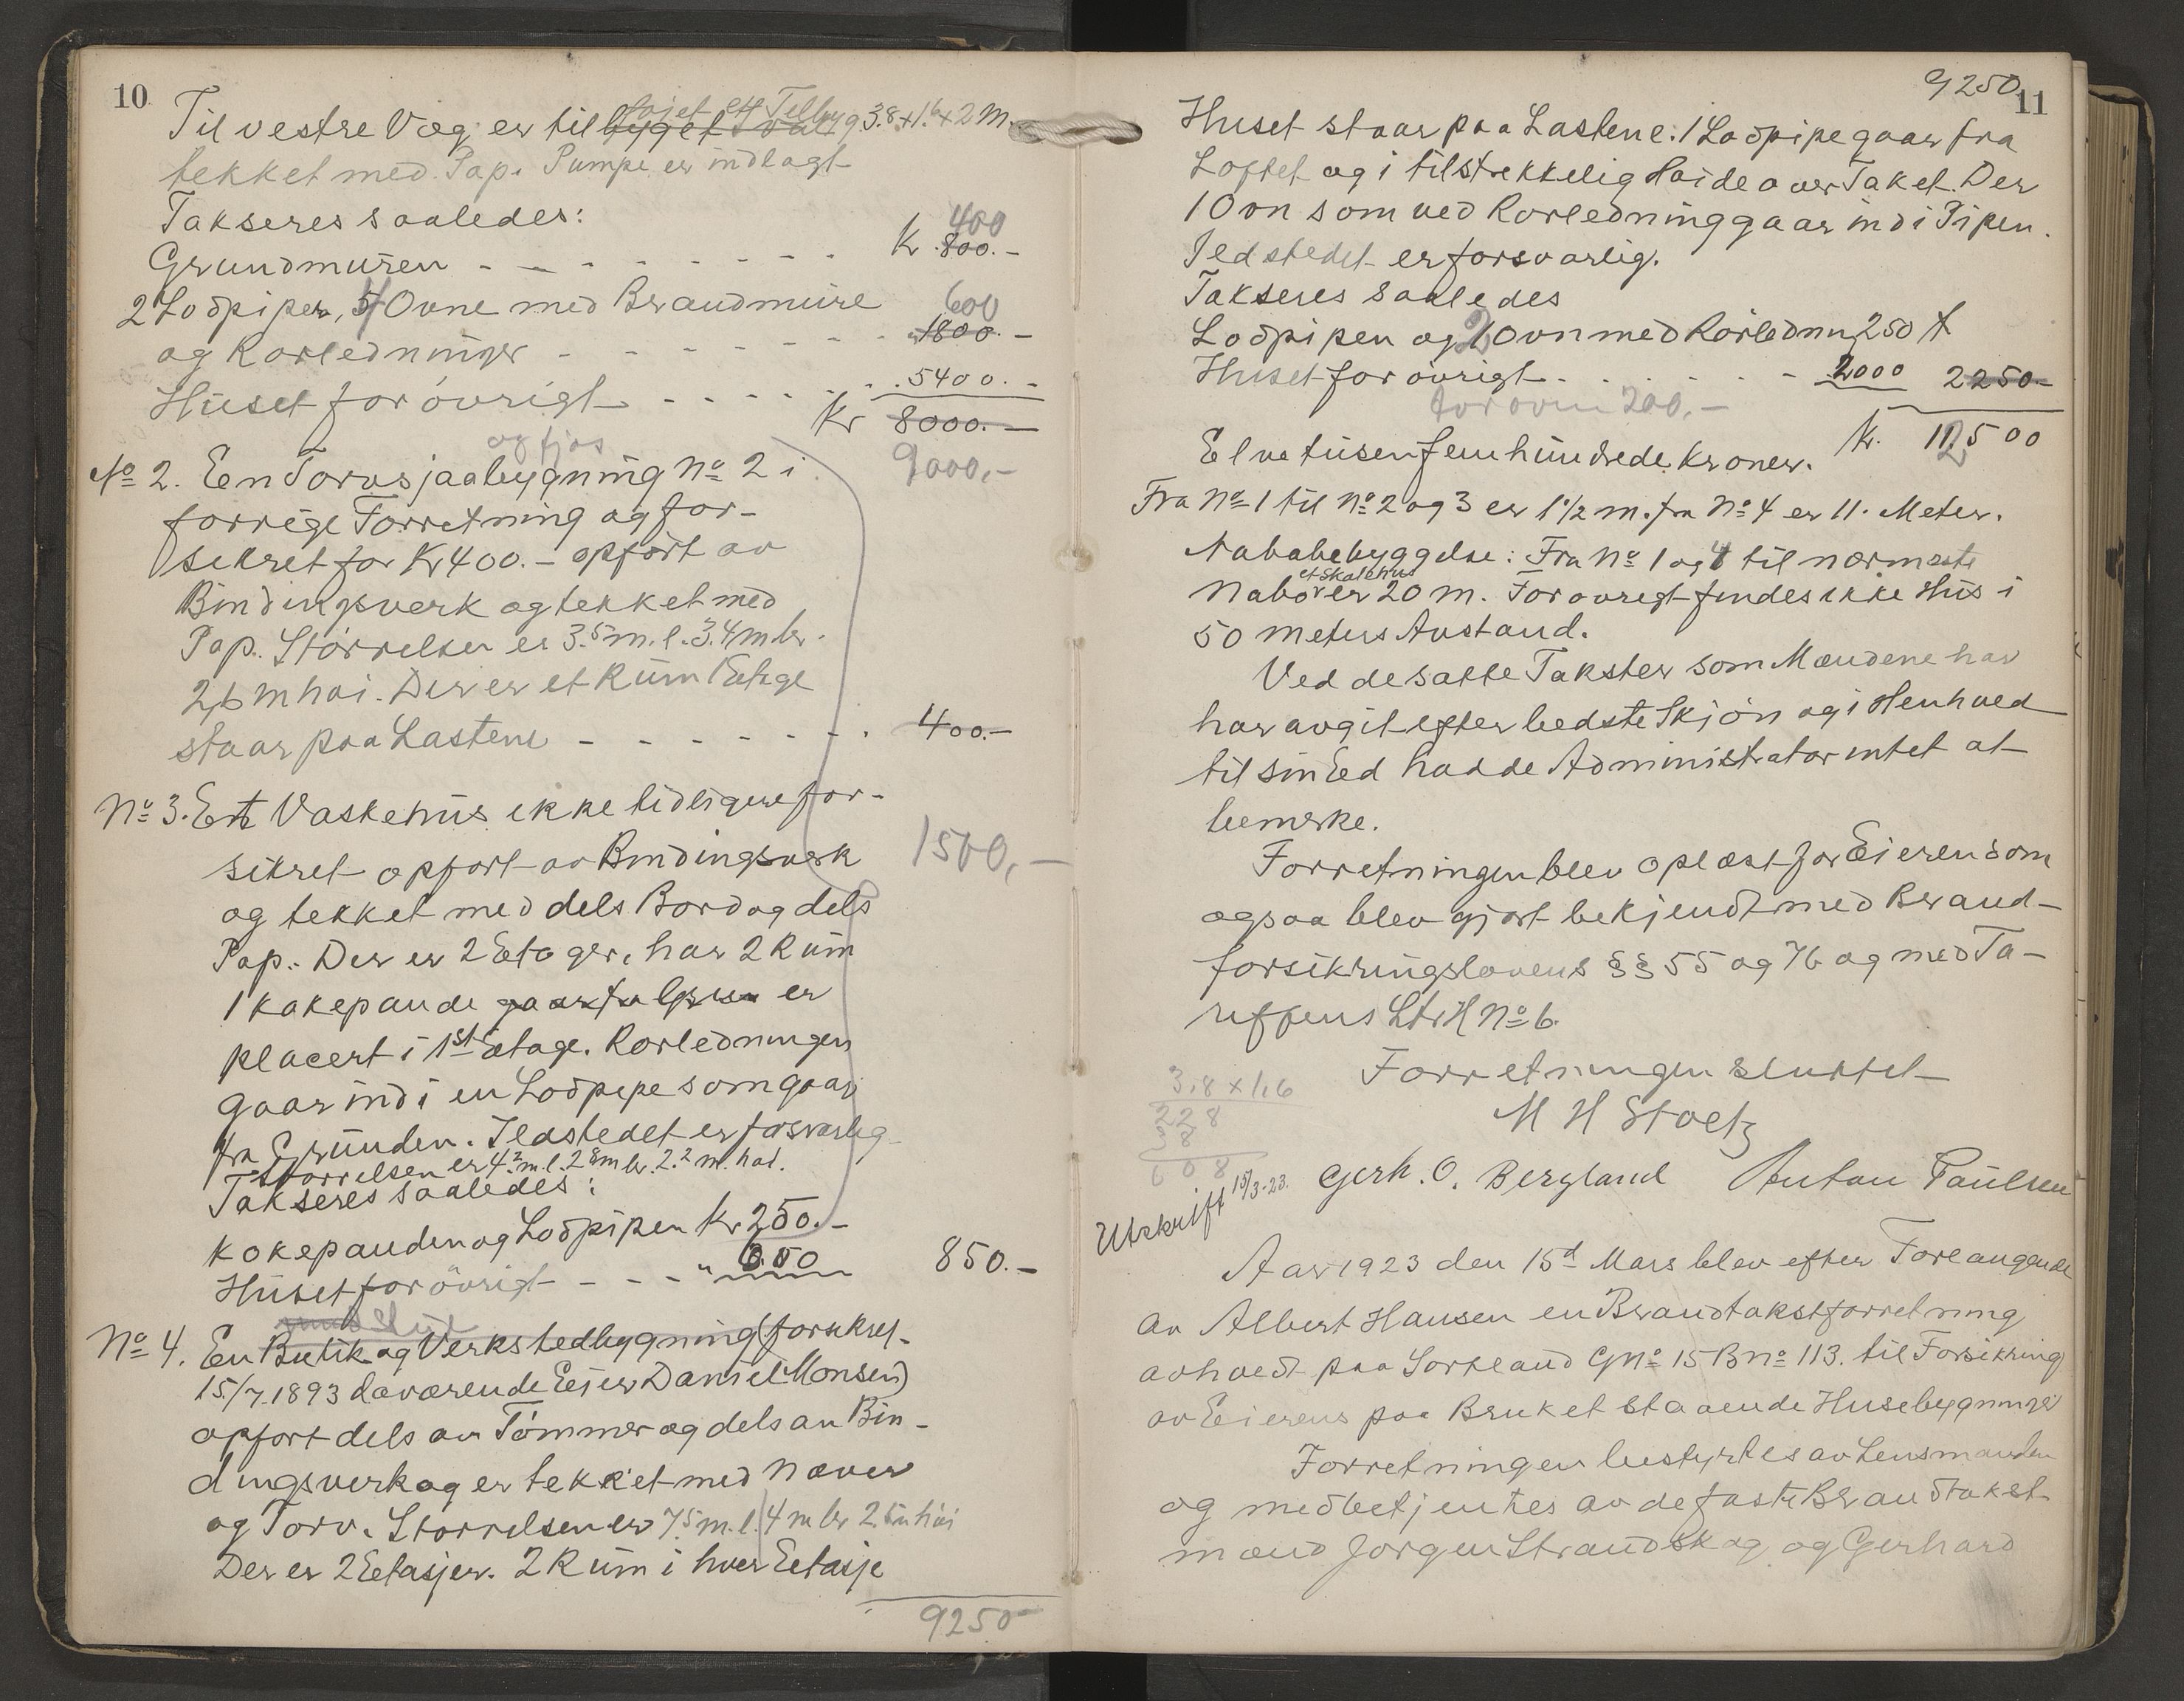 10
Til vestre Væg er tilbygget føjet et Tilbyg 3.8 x 1.6 x 2 M.
tekket med Pap. Pumpe er indlagt
Takseres saaledes:
400
Grundmuren - - - - - - - - Kr. 800.-
2 Lodpiper, 4 Ovne med Brandmure 600
og Rørledninger - - - - - - - 1800.-
Huset forøvrigt - - - - - - 5400.-
Kr 8000.-
og fjøs
No 2. En Torvsjaabygning No 2 i 9000,-
forrige Forretning og for-
sikret for Kr 400.- opført av
Bindingsverk og tekket med
Pap. Størrelsen er 3.5 m. l. 3.4 m br.
2,6 m høi. Der er et Rum 1 Etage
staar paa Lastene - - - - - - - 400.-
No 3. Et Vaskehus ikke tidligere for-
sikret opført av Bindingsverk 1500,-
og tekket med dels Bord og dels
Pap. Der er 2 Etager, har 2 Rum
1 kokepande er
placert i 1ste Etage. Rørledningen
gaar ind i en Lodpipe som gaar
fra Grunden. Ildstedet er forsvarlig
Størrelsen er 4.2 m. l. 2.8 m br. 2.2 m. høi.
Takseres saaledes:
kokepanden og Lodpipen Kr 250.-
Huset forøvrigt - - - " 600 850.-
No 4. En Butik og Verkstedbygning (forsikret
15/7 1893 daværende Eier Daniel Monsen)
opført dels av Tømmer og dels av Bin-
dingsverk og er tekket med Næver
og Torv. Størrelsen er 7.5 m. l. 4 m br 2.5 m høi
Der er 2 Eetasjer. 2 Rum i hver Eetasje
9250-
9250
11
Huset staar paa Lastene. 1 Lodpipe gaar fra
Loftet og i tilstrekkelig Høide over Taket. Der
1 Ovn som ved Rørledning gaar ind i Pipen.
Ildstedet er forsvarlig.
Takseres saaledes
Lodpipen og 2 Ovn med Rørledn 250
Huset forøvrigt - - - - - - 2000 2250-
for ovn 200,-
Elvetusenfemhundrede kroner. Kr. 12500
Fra No 1 til No 2 og 3 er 1 1/2 m. fra No 4 er 11. Meter.
Nabobebyggelse: Fra No 1 og 4 til nærmeste
et Skolehus
Nabo er 20 m. Forøvrigt findes ikke Hus i
50 meters Avstand.
Ved de satte Takster som Mændene har
har avgit efter bedste Skjøn og i Henhold
til sin Eed hadde Administrator intet at
bemerke.
Forretningen blev oplæst for Eieren som
ogsaa blev gjort bekjendt med Brand-
forsikringslovens §§ 55 og 76 og med Ta-
riffens Litr H No 6.
Forretningen sluttet
3,8 x 1,6
228
38
608
M H Stoltz
Utskrift 15/3-23.
Gerh. O. Bergland Anton Paulsen
Aar 1923 den 15d Mars blev efter Forlangende
av Albert Hansen en Brandtakstforretning
avholdt paa Sortland Gno 15 Bno 113. til Forsikring
av Eierens paa Bruket staaende Husebygninger
Forretningen bestyrtes av Lensmanden
og medbetjentes av de faste Brandtakst-
mænd Jørgen Strandskog og Gerhard